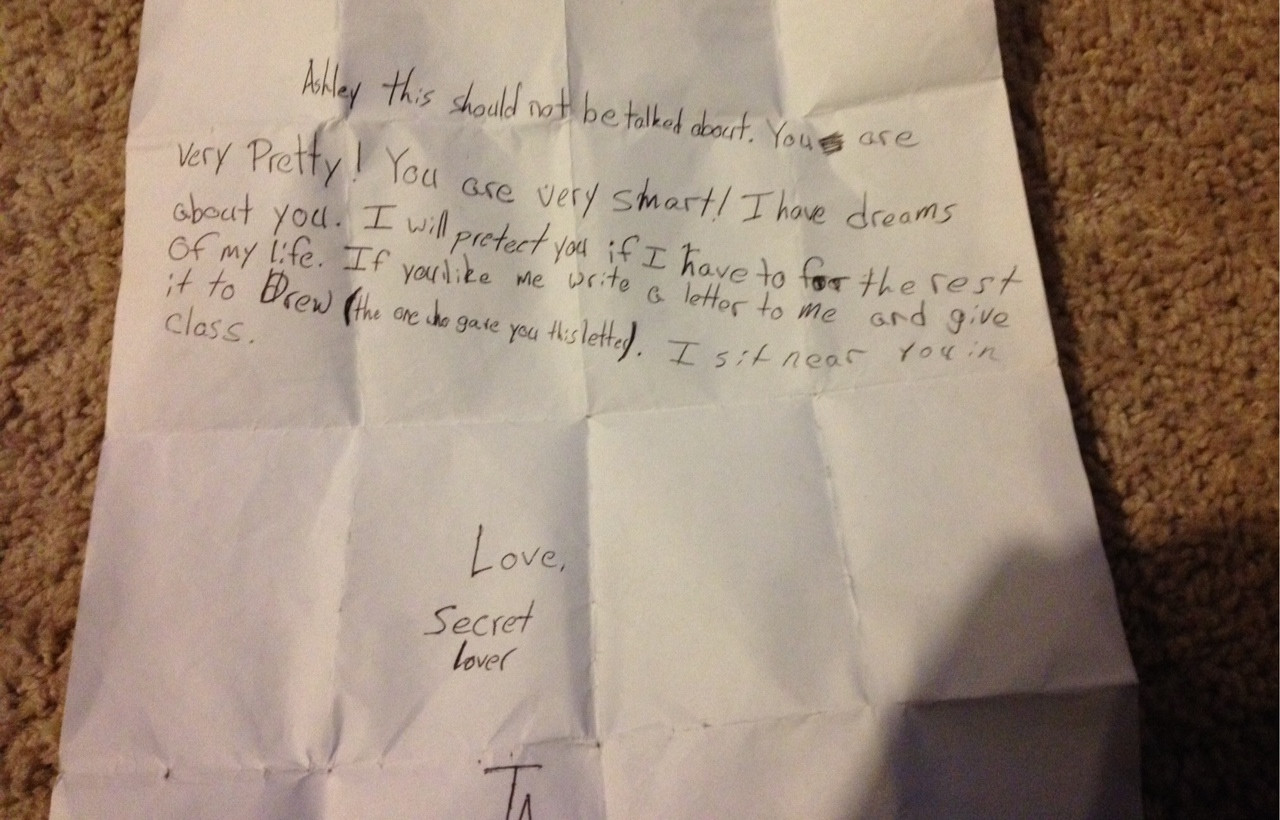 Ashley this should not be talked about. You are
very Pretty! You are very smart! I have dreams
about you. I will pretect you if I have to for the rest
Of my life. If you like me write a letter to me and give
it to Drew (the one who gave you this letter). I sit near you in
class.
Love,
Secret
lover